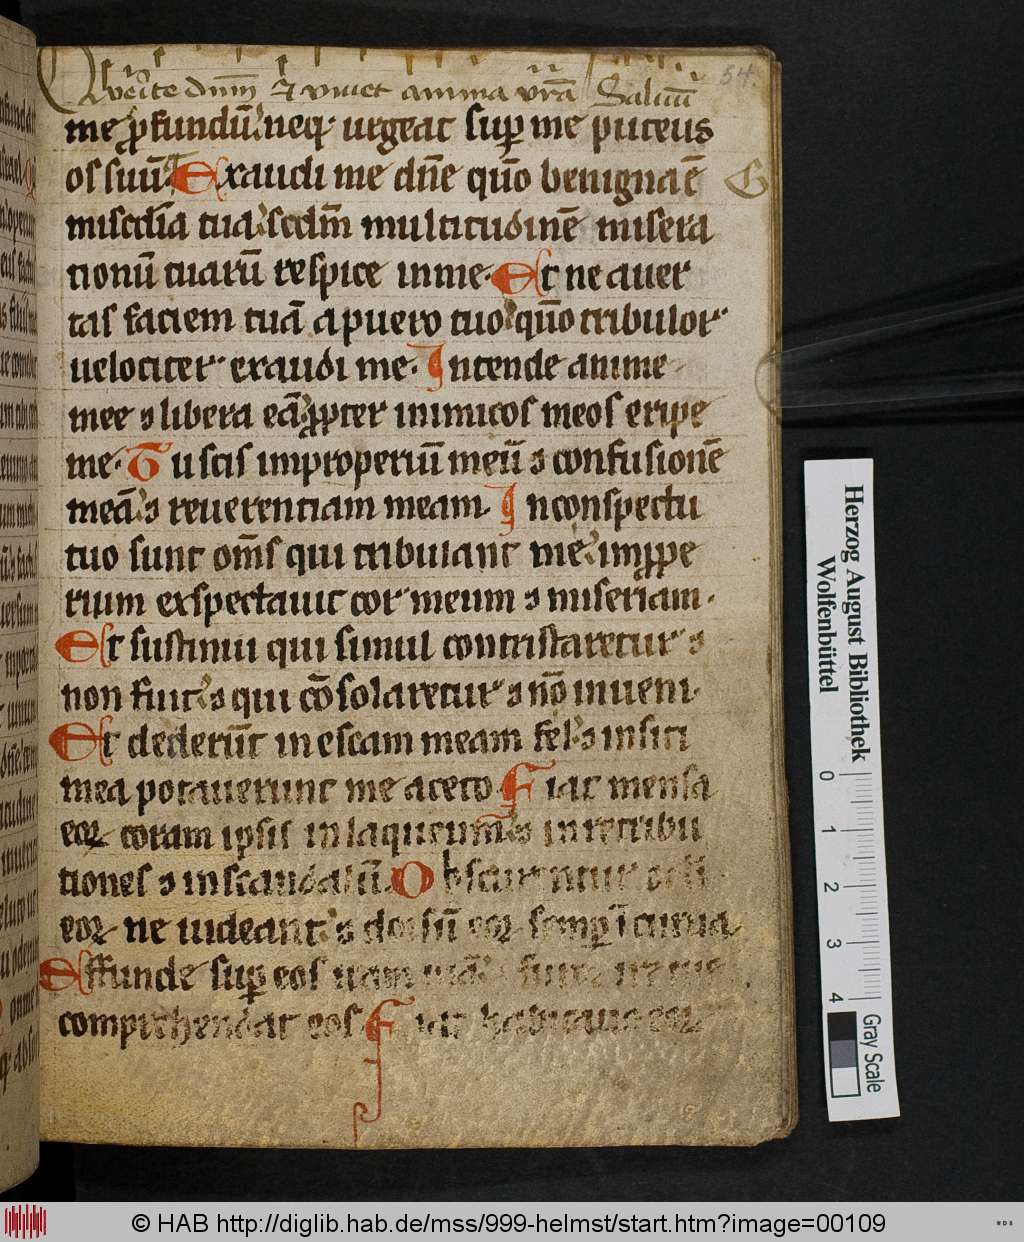 54
Querite dnm & viuet anima vra Saluu
me ꝓfundū. neq; urgeat suꝑ me puteus
os suū. Exaudi me dn̄e qm̄o benigna ē
misc̄dia tua. scdm̄ multitudinē misera
tionū tuarū respice in me. Et ne auer
tas faciem tuā a puero tuo. qm̄o tribulor
uelociter exaudi me. Intende anime
mee ⁊ libera eā. ꝓpter inimicos meos eripe
me. Tu scis improperiū meū ⁊ confusionē
meā. ⁊ reuerentiam meam. In conspectu
tuo sunt om̄s qui tribulant me. imꝓpe
rium exspectauit cor meum ⁊ miseriam.
Et sustinui qui simul contristaretur ⁊
non fuit. ⁊ qui cōsolaretur ⁊ nō inueni.
Et dederūt in escam meam fel. ⁊ in siti
mea potauerunt me aceto Fiat mensa
eoꝝ coram ipsis in laqueum. ⁊ in retribu
tiones ⁊ in scandalū. Obscurentur oculi
eoꝝ ne uideant. ⁊ dorsū eoꝝ semꝑ īcurua
Effunde suꝑ eos iram tuā. ⁊ furor ire tue
comprehendat eos Fiat habitatio eoꝝ
Herzog August Bibliothek
Wolfenbüttel
0 1 2 3 4
Gray Scale
© HAB http://diglib.hab.de/mss/999-helmst/start.htm?image=00109